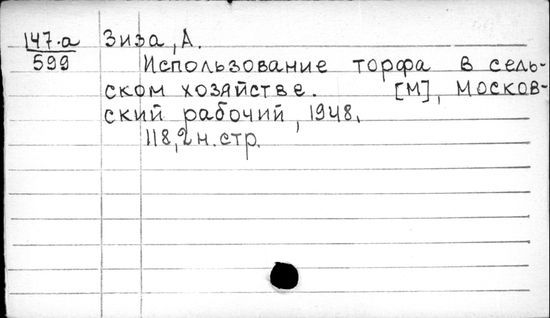 147.а Зиза, А.
599 Использование торфа в сель-
ском хозяйстве. [М], Москов-
ский рабочий, 1948.
118,2 н. стр.